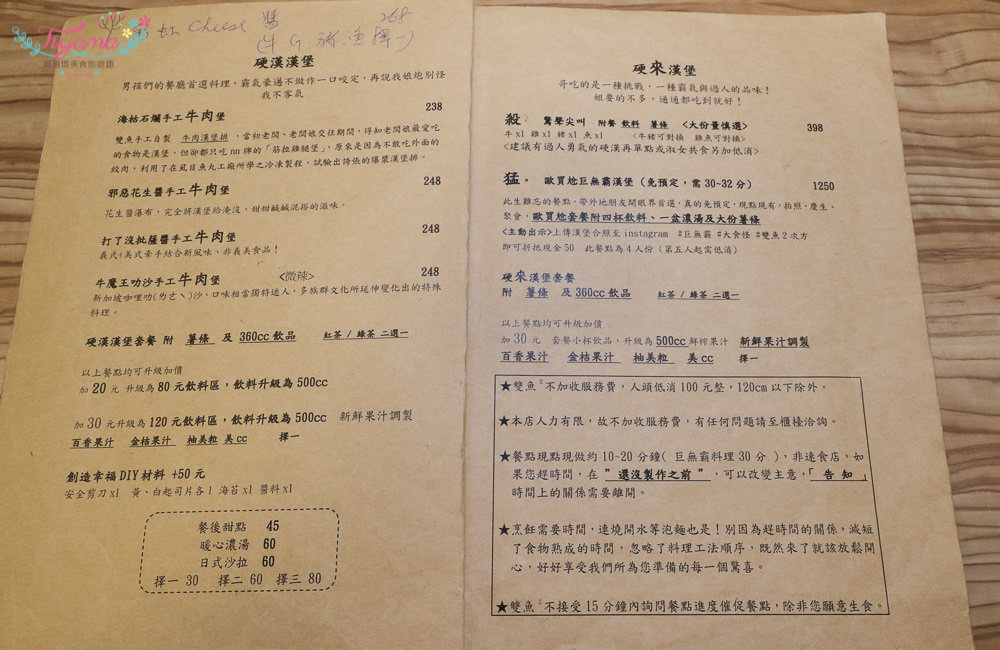 Tiyama
緹雅瑪美食旅遊趣
cheese 醬 268
(牛 G. 豬. 魚 擇一)
硬漢漢堡
男孩們的餐廳首選料理，霸氣豪邁不做作一口咬定，再說我娘炮別怪
我不客氣
海枯石爛手工牛肉堡 238
雙魚手工自製 牛肉漢堡排，當初老闆、老闆娘交往期間，得知老闆娘最愛吃
的食物是漢堡，但卻都只吃 nn 牌的「筋拉雞腿堡」，原來是因為不敢吃外面的
絞肉，利用了在虱目魚丸工廠所學之冷凍製程，試驗出誇張的爆漿漢堡排。
邪惡花生醬手工牛肉堡 248
花生醬瀑布，完全將漢堡給淹沒，甜甜鹹鹹混搭的滋味。
打了沒批薩醬手工牛肉堡 248
義式+美式牽手結合新風味，非義美食品！
牛魔王叻沙手工牛肉堡 <微辣> 248
新加坡咖哩叻(ㄌㄜˋ)沙，口味相當獨特迷人，多族群文化所延伸變化出的特殊
料理。
硬漢漢堡套餐 附 薯條 及 360cc 飲品 紅茶 / 綠茶 二選一
以上餐點均可升級加價
加 20 元 升級為 80 元飲料區，飲料升級為 500cc
加 30 元升級為 120 元飲料區，飲料升級為 500cc 新鮮果汁調製
百香果汁 金桔果汁 柚美粒 美 cc 擇一
創造幸福 DIY 材料 +50 元
安全剪刀 x1 黃、白起司片各 1 海苔 x1 醬料 x1
餐後甜點 45
暖心濃湯 60
日式沙拉 60
擇一 30 擇二 60 擇三 80
硬來漢堡
哥吃的是一種挑戰，一種霸氣與過人的品味！
姐要的不多，通通都吃到就好！
殺. 驚聲尖叫 附餐 飲料 薯條 <大份量慎選> 398
牛 x1 雞 x1 豬 x1 魚 x1 <牛豬可對換 雞魚可對換>
<建議有過人勇氣的硬漢再單點或淑女共食另加低消>
猛. 歐買尬巨無霸漢堡 (免預定，需 30~32 分) 1250
此生難忘的餐點，帶外地朋友開眼界首選，真的免預定，現點現有，拍照、慶生、
聚會，歐買尬套餐附四杯飲料、一盆濃湯及大份薯條
<主動出示>上傳漢堡合照至 instagram #巨無霸 #大食怪 #雙魚 2 次方
即可折抵現金 50 此餐點為 4 人份 (第五人起需低消)
硬來漢堡套餐
附 薯條 及 360cc 飲品 紅茶 / 綠茶 二選一
以上餐點均可升級加價
加 30 元 套餐小杯飲品、升級為 500cc 鮮榨果汁 新鮮果汁調製
百香果汁 金桔果汁 柚美粒 美 cc 擇一
★雙魚²不加收服務費，人頭低消 100 元整，120cm 以下除外。
★本店人力有限，故不加收服務費，有任何問題請至櫃檯洽詢。
★餐點現點現做約 10~20 分鐘( 巨無霸料理 30 分 )，非速食店，如
果您趕時間，在 ”還沒製作之前”，可以改變主意，「 告知 」
時間上的關係需要離開。
★烹飪需要時間，連燒開水等泡麵也是！別因為趕時間的關係，減短
了食物熟成的時間，忽略了料理工法順序，既然來了就該放鬆開
心，好好享受我們所為您準備的每一個驚喜。
★雙魚²不接受 15 分鐘內詢問餐點進度催促餐點，除非您願意生食。